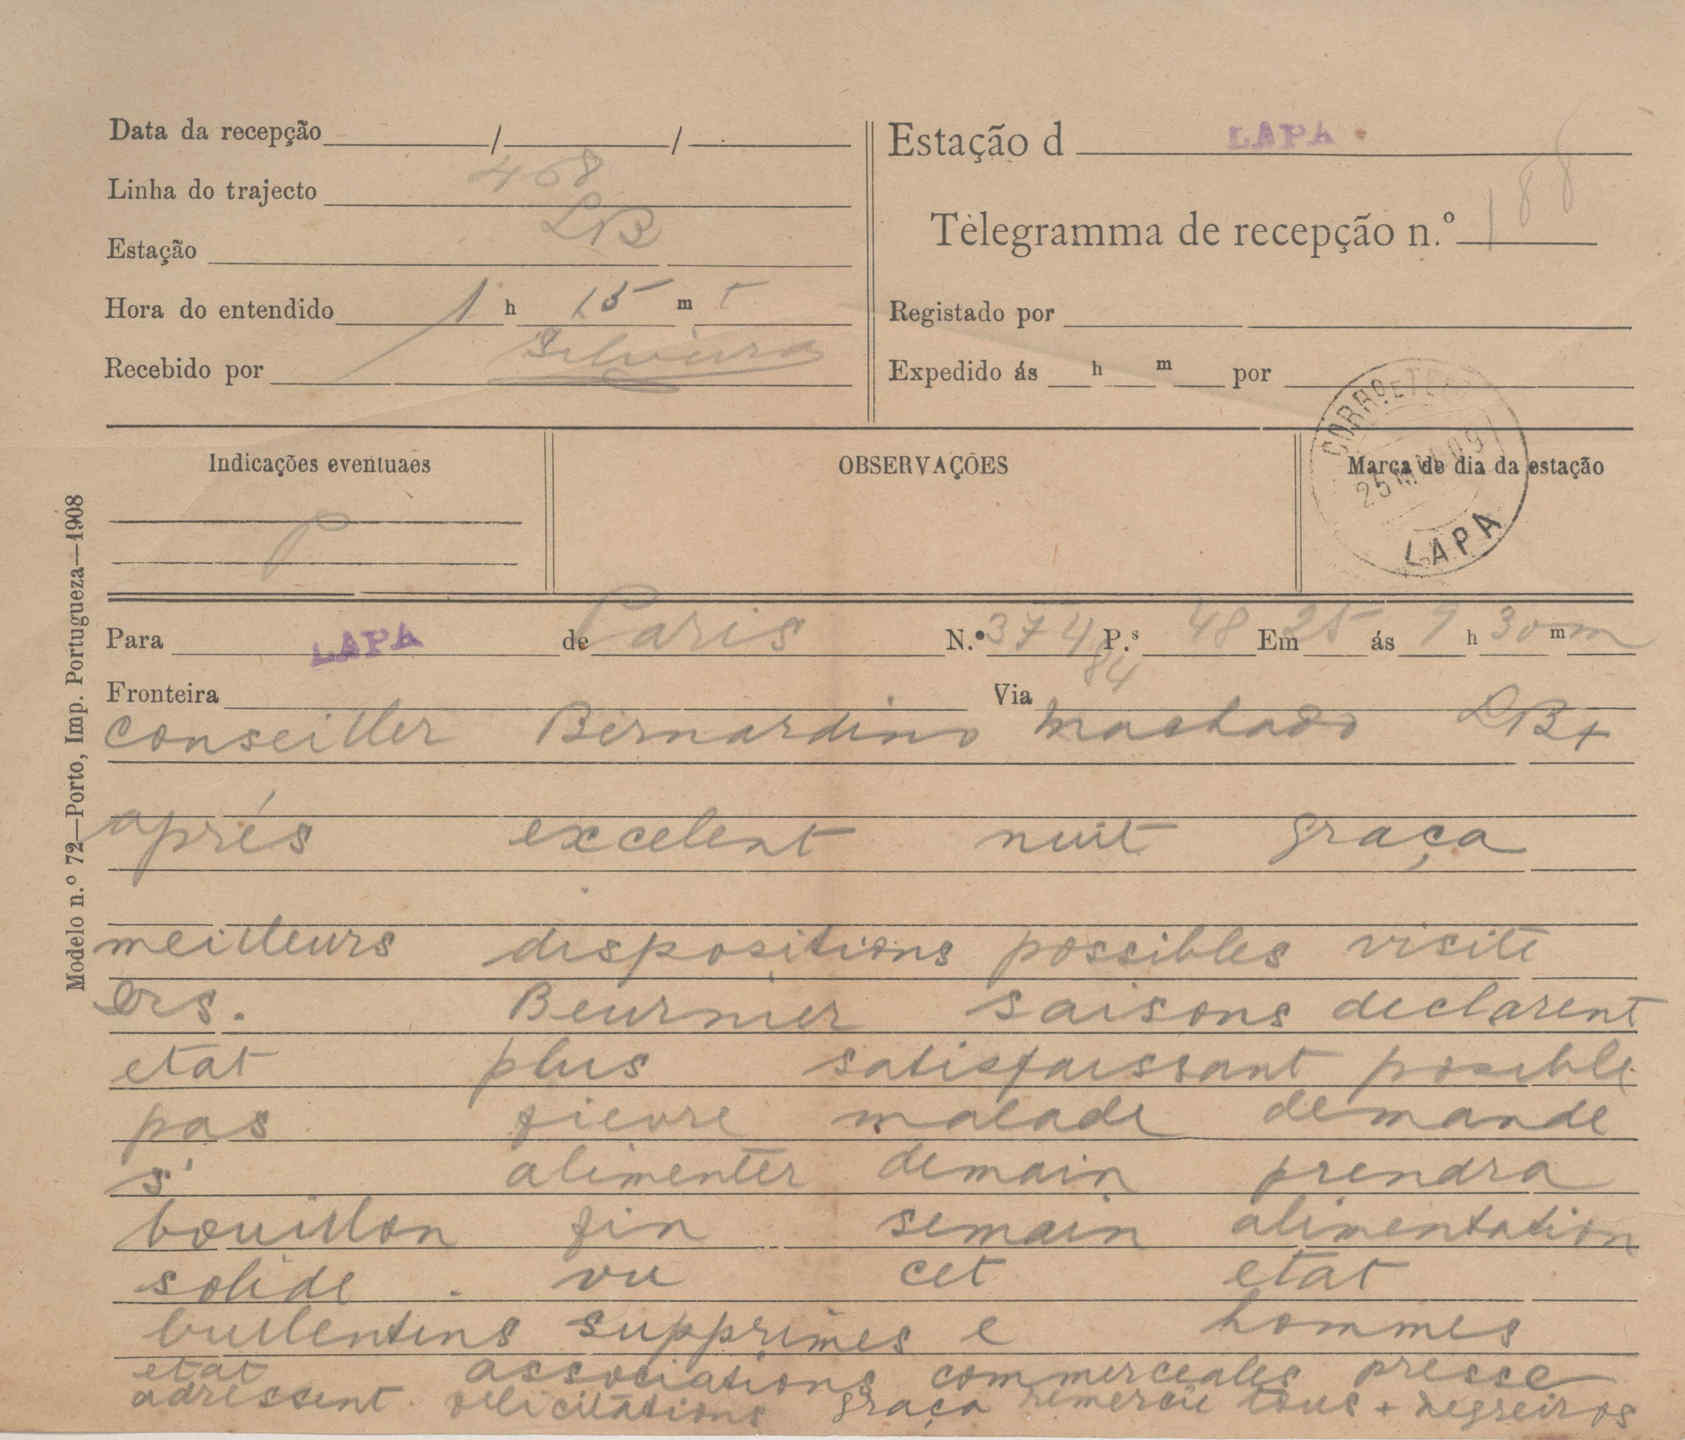 Data da recepção / /
Linha do trajecto 468
Estação LB
Hora do entendido 1 h 15 m t
Recebido por Silveira
Estação d LAPA
Telegramma de recepção n.º 188
Registado por
Expedido ás h m por
Indicações eventuaes
P
OBSERVAÇÕES
Marca do dia da estação
CORRO E TEL
25 09
LAPA
Modelo n.º 72—Porto, Imp. Portugueza—1908
Para LAPA de Paris N.º 374 P.s 48 Em 25 ás 9 h 30 m m
84
Fronteira Via
conseiller Bernardino Machado LBx
aprés excelent nuit graça
meilleurs dispositions possibles visite
Drs. Beurnier saisons declarent
etat plus satisfaissant possible
pas fievre malade demande
s' alimenter demain prendra
bouillon fin semain alimentation
solide . vu cet etat
bullentins supprimes e hommes
etat associations commerceales presse
adressent felicitations graça remercie tous + negreiros